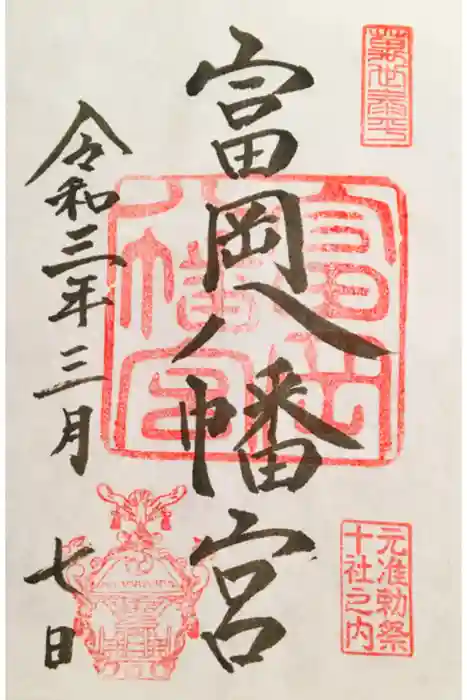 萬世泰平
富岡八幡宮
元准勅祭
十社之内
富岡八幡宮
令和三年三月
七日